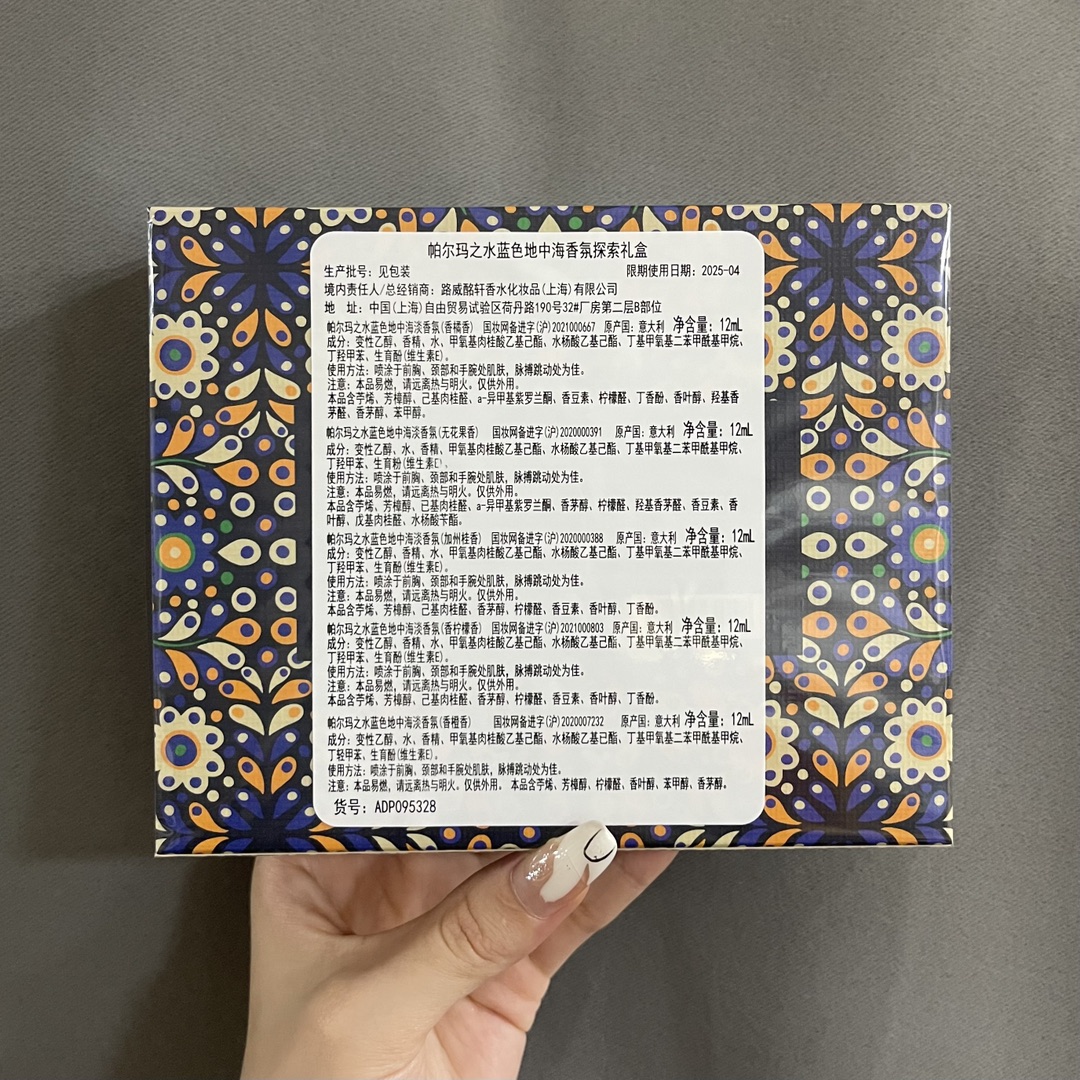 帕尔玛之水蓝色地中海香氛探索礼盒
生产批号：见包装 限期使用日期：2025-04
境内责任人/总经销商：路威酩轩香水化妆品(上海)有限公司
地 址：中国(上海)自由贸易试验区荷丹路190号32#厂房第二层B部位
帕尔玛之水蓝色地中海淡香氛(香橘香) 国妆网备进字(沪)2021000667 原产国：意大利 净含量：12mL
成分：变性乙醇、香精、水、甲氧基肉桂酸乙基己酯、水杨酸乙基己酯、丁基甲氧基二苯甲酰基甲烷、
丁羟甲苯、生育酚(维生素E)。
使用方法：喷涂于前胸、颈部和手腕处肌肤，脉搏跳动处为佳。
注意：本品易燃，请远离热与明火。仅供外用。
本品含苧烯、芳樟醇、己基肉桂醛、a-异甲基紫罗兰酮、香豆素、柠檬醛、丁香酚、香叶醇、羟基香
茅醛、香茅醇、苯甲醇。
帕尔玛之水蓝色地中海淡香氛(无花果香) 国妆网备进字(沪)2020000391 原产国：意大利 净含量：12mL
成分：变性乙醇、水、香精、甲氧基肉桂酸乙基己酯、水杨酸乙基己酯、丁基甲氧基二苯甲酰基甲烷、
丁羟甲苯、生育粉(维生素E)。
使用方法：喷涂于前胸、颈部和手腕处肌肤，脉搏跳动处为佳。
注意：本品易燃，请远离热与明火。仅供外用。
本品含苧烯、芳樟醇、己基肉桂醛、a-异甲基紫罗兰酮、香茅醇、柠檬醛、羟基香茅醛、香豆素、香
叶醇、戊基肉桂醛、水杨酸苄酯。
帕尔玛之水蓝色地中海淡香氛(加州桂香) 国妆网备进字(沪)2020000388 原产国：意大利 净含量：12mL
成分：变性乙醇、香精、水、甲氧基肉桂酸乙基己酯、水杨酸乙基己酯、丁基甲氧基二苯甲酰基甲烷、
丁羟甲苯、生育酚(维生素E)。
使用方法：喷涂于前胸、颈部和手腕处肌肤，脉搏跳动处为佳。
注意：本品易燃，请远离热与明火。仅供外用。
本品含苧烯、芳樟醇、己基肉桂醛、香茅醇、柠檬醛、香豆素、香叶醇、丁香酚。
帕尔玛之水蓝色地中海淡香氛(香柠檬香) 国妆网备进字(沪)2021000803 原产国：意大利 净含量：12mL
成分：变性乙醇、香精、水、甲氧基肉桂酸乙基己酯、水杨酸乙基己酯、丁基甲氧基二苯甲酰基甲烷、
丁羟甲苯、生育酚(维生素E)。
使用方法：喷涂于前胸、颈部和手腕处肌肤，脉搏跳动处为佳。
注意：本品易燃，请远离热与明火。仅供外用。
本品含苧烯、芳樟醇、己基肉桂醛、香茅醇、柠檬醛、香豆素、香叶醇、丁香酚。
帕尔玛之水蓝色地中海淡香氛(香橙香) 国妆网备进字(沪)2020007232 原产国：意大利 净含量：12mL
成分：变性乙醇、水、香精、甲氧基肉桂酸乙基己酯、水杨酸乙基己酯、丁基甲氧基二苯甲酰基甲烷、
丁轻甲苯、生育酚(维生素E)。
使用方法：喷涂于前胸、颈部和手腕处肌肤，脉搏跳动处为佳。
注意：本品易燃，请远离热与明火。仅供外用。 本品含苧烯、芳樟醇、柠檬醛、香叶醇、苯甲醇、香茅醇。
货号：ADP095328